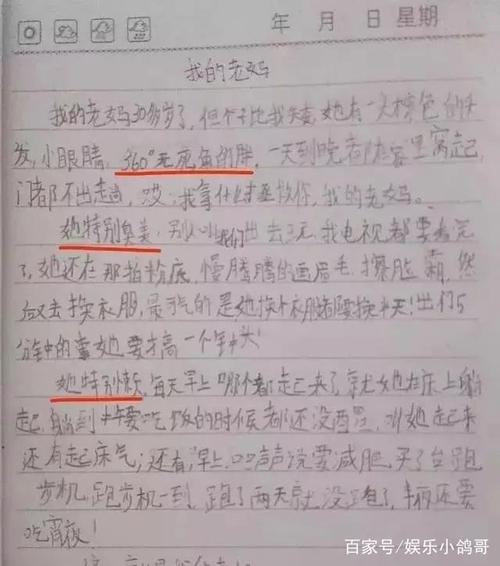 年 月 日 星期
我的老妈
我的老妈30多岁了，但个子比我矮，她有一头棕色的头
发，小眼睛，360°无死角的胖，一天到晚都在家里窝起，
门都不出走尚，哎：我拿什么拯救你，我的老妈。
她特别臭美，别人叫我们出去玩，我电视都要看完
了，她还在那拍粉底，慢腾腾的画眉毛，擦脸霜，然
后又去换衣服，最气的是她换个衣服都要换半天！出门5
分钟的事她要搞一个钟头！
她特别懒，每天早上哪个都起来了，就她在床上躺
起，躺到中午要吃饭的时候都还没西里，叫她起来
还有起床气；还有，早上口口声声说要减肥，买了台跑
步机，跑步机一到，跑了两天就没跑了，半夜还要
吃宵夜！
百家号/娱乐小鸽哥